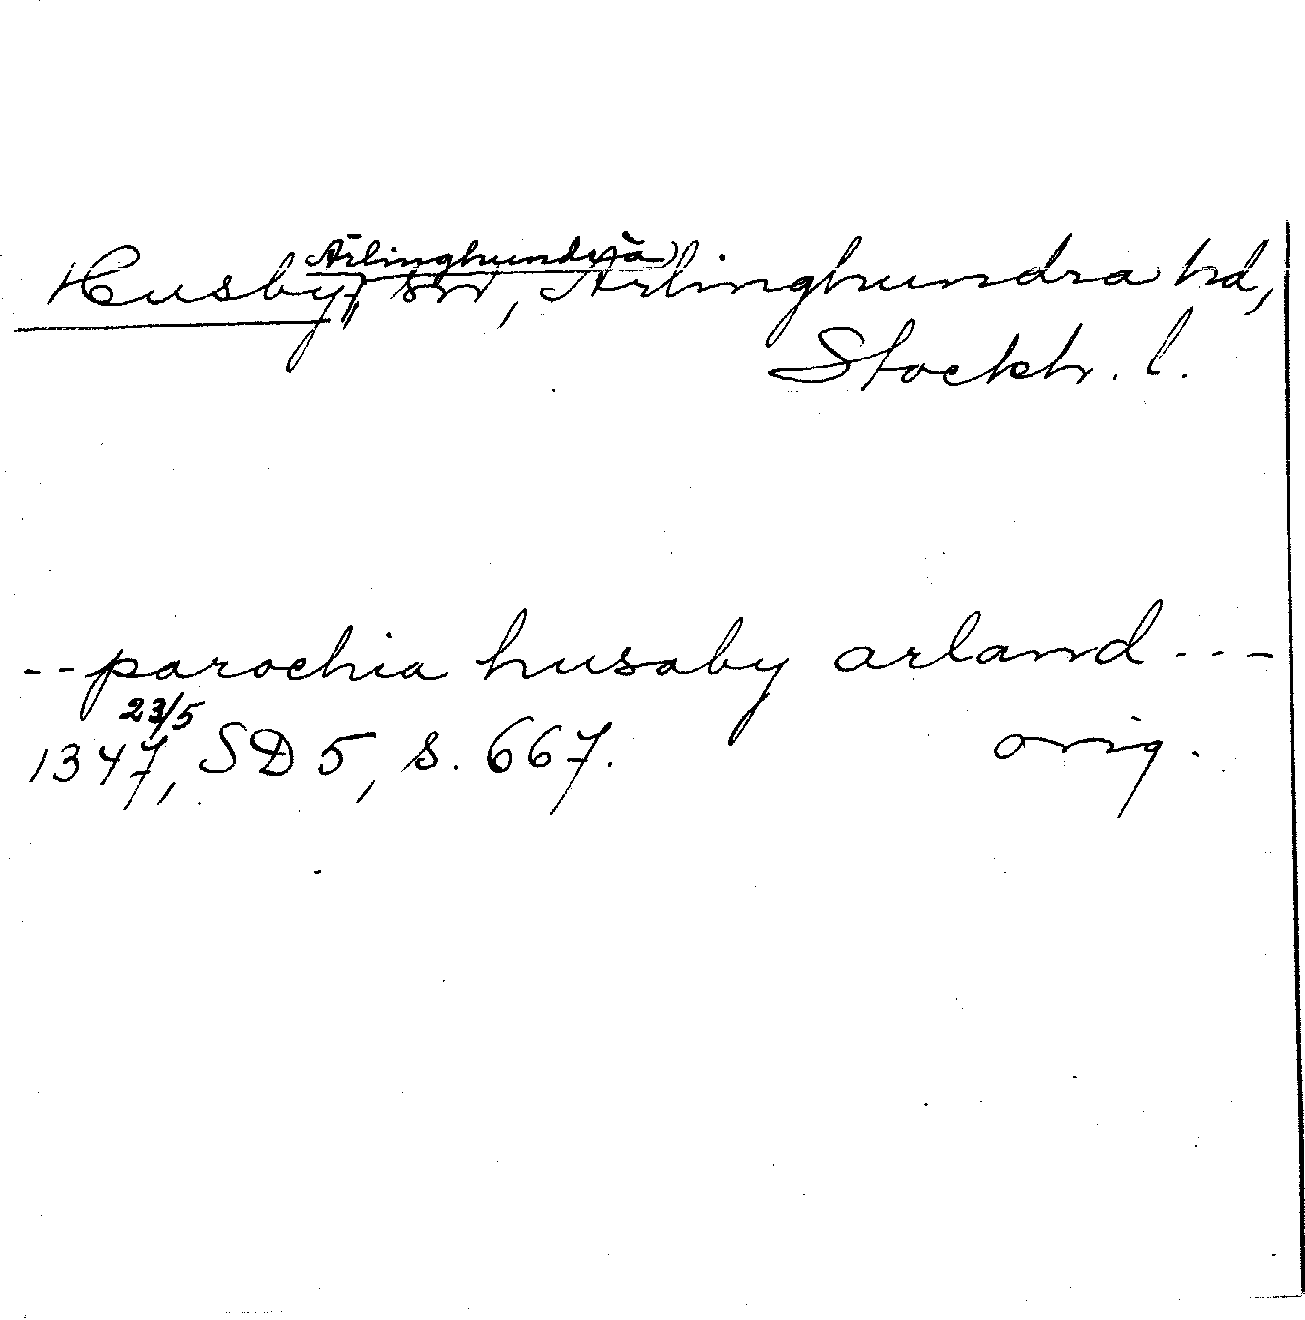 Husby, Ärlinghundra sn, Ärlinghundra hd,
Stockh. l.
-- parochia husaby arland ---
23/5
1347, SD 5, s. 667. orig.